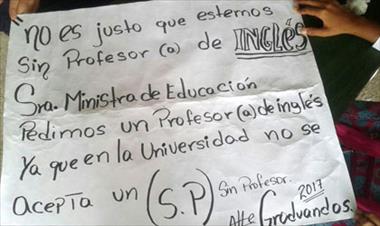 "no es justo que estemos
Sin Profesor (a) de INGLÉS
Sra. Ministra de Educación
Pedimos un Profesor(a) de inglés
Ya que en la Universidad no se
acepta un (S.P) Sin Profesor.
Atte Graduandos. 2017